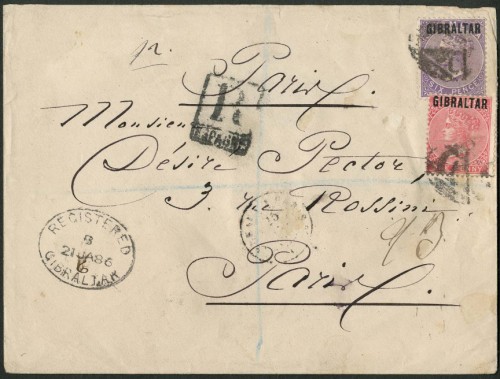 GIBRALTAR
SIX PENCE
GIBRALTAR
pr.
Paris.
R
Monsieur
Désiré Pector,
3. rue Rossini
Paris.
REGISTERED
B
21 JA 86
GIBRALTAR